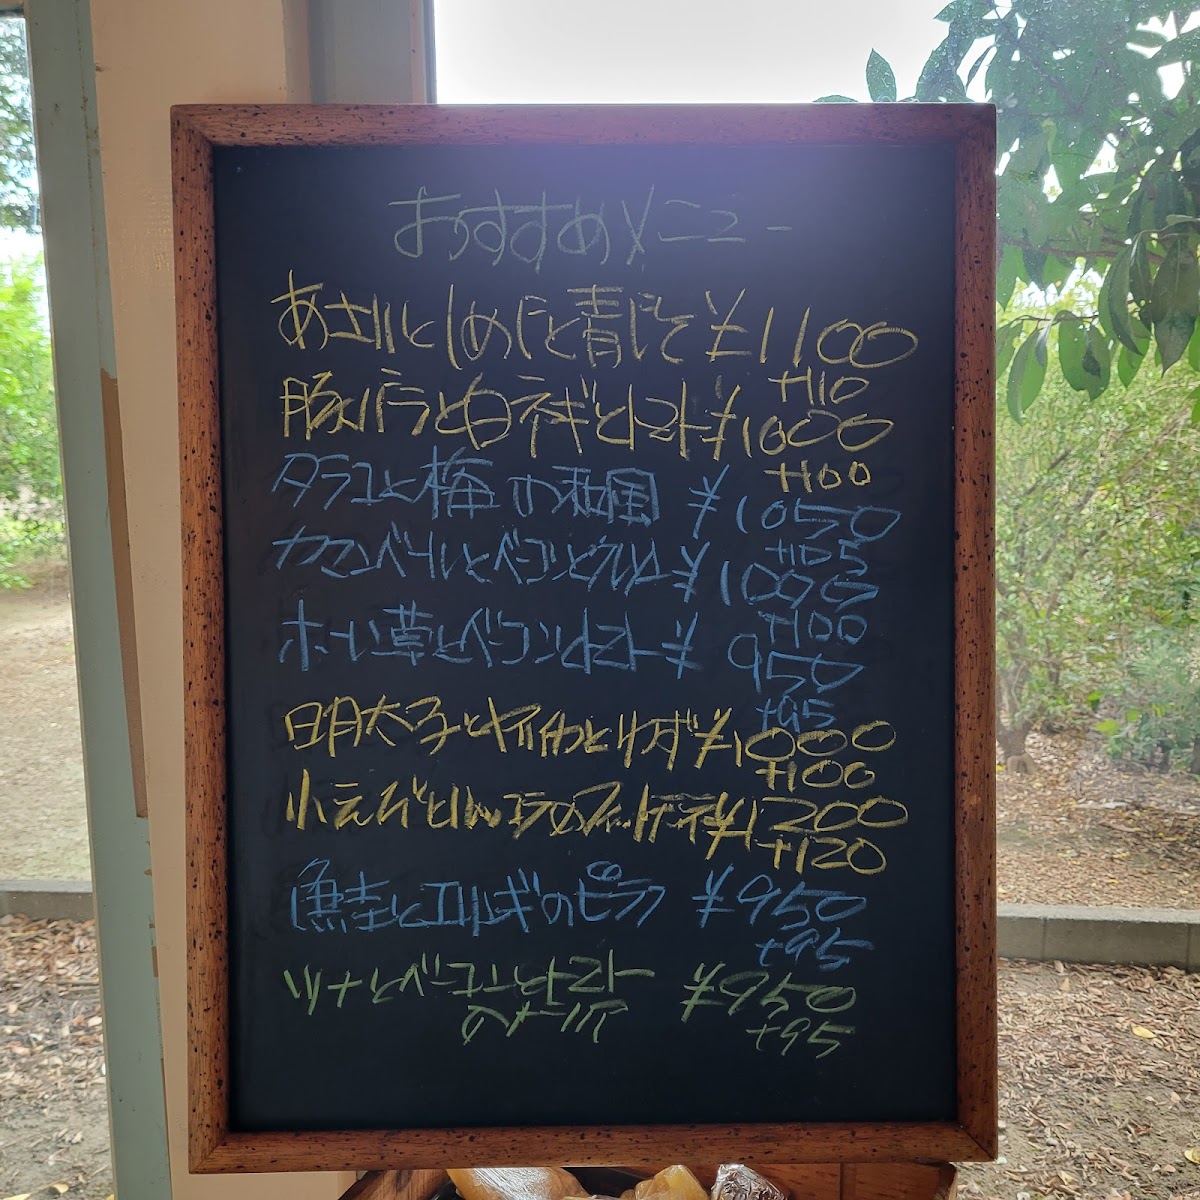 おすすめメニュー
あさりとしめじと青じそ ¥1100
+110
豚バラと白ネギとトマト ¥1000
+100
タラコと梅の和風 ¥1050
+105
カマンベールとベーコンとクルミ ¥1095
+100
ホーレン草とベーコンとトマト ¥950
+95
明太子とヤイカとゆず ¥1000
+100
小えびと ¥1200
+120
鮭とエリンギのピラフ ¥950
+95
ツナとベーコンとトマト ¥950
+95